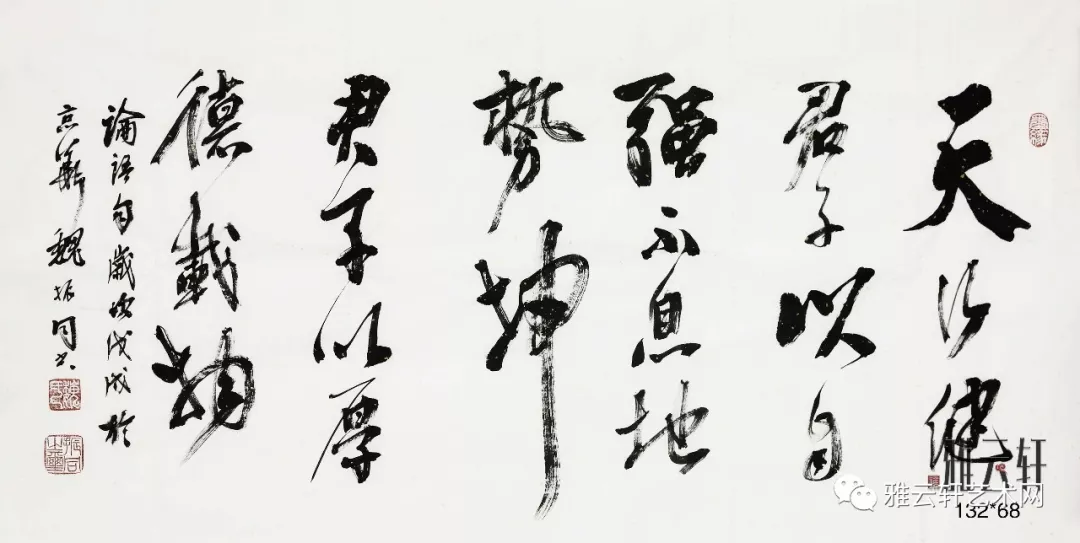 天行健
君子以自
强不息地
势坤
君子以厚
德载物
論語句歲次戊戌於
京華魏振同書
雅云轩
雅云轩艺术网
132*68